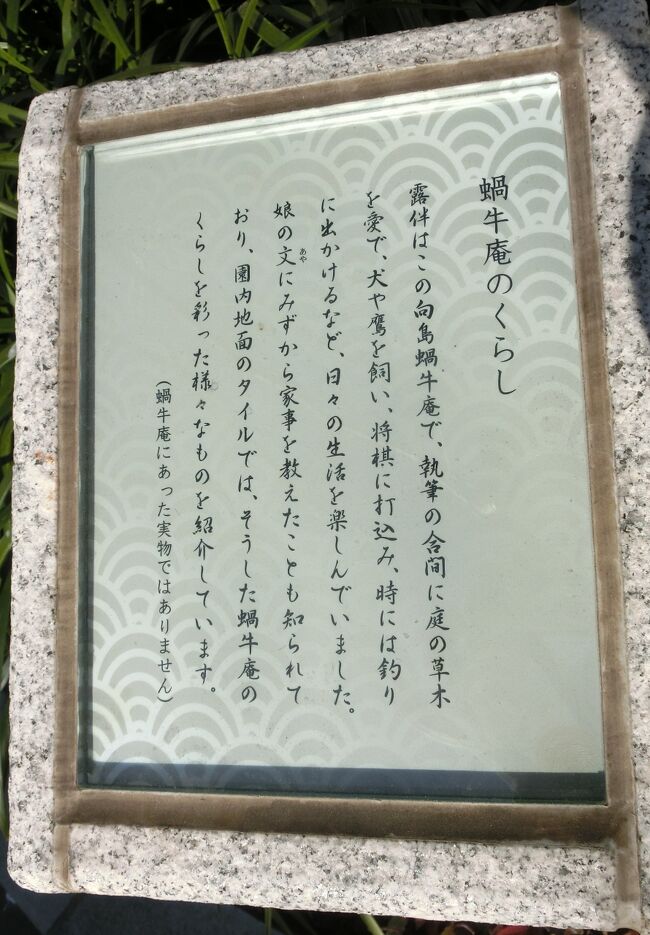 蝸牛庵のくらし
露伴はこの向島蝸牛庵で、執筆の合間に庭の草木
を愛で、犬や鷹を飼い、将棋に打込み、時には釣り
に出かけるなど、日々の生活を楽しんでいました。
娘の文にみずから家事を教えたことも知られて
あや
おり、園内地面のタイルでは、そうした蝸牛庵の
くらしを彩った様々なものを紹介しています。
（蝸牛庵にあった実物ではありません）